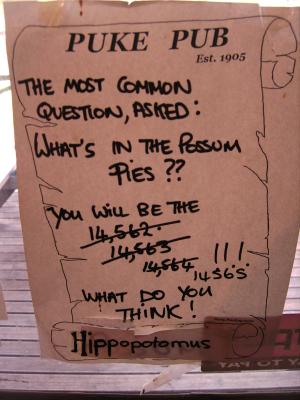 PUKE PUB
Est. 1905
THE MOST COMMON
QUESTION, ASKED:
WHAT'S IN THE POSSUM
PIES ??
YOU WILL BE THE
14,562
14,563
14,564 !!!
14565
WHAT DO YOU
THINK!
Hippopotomus
TO PAT